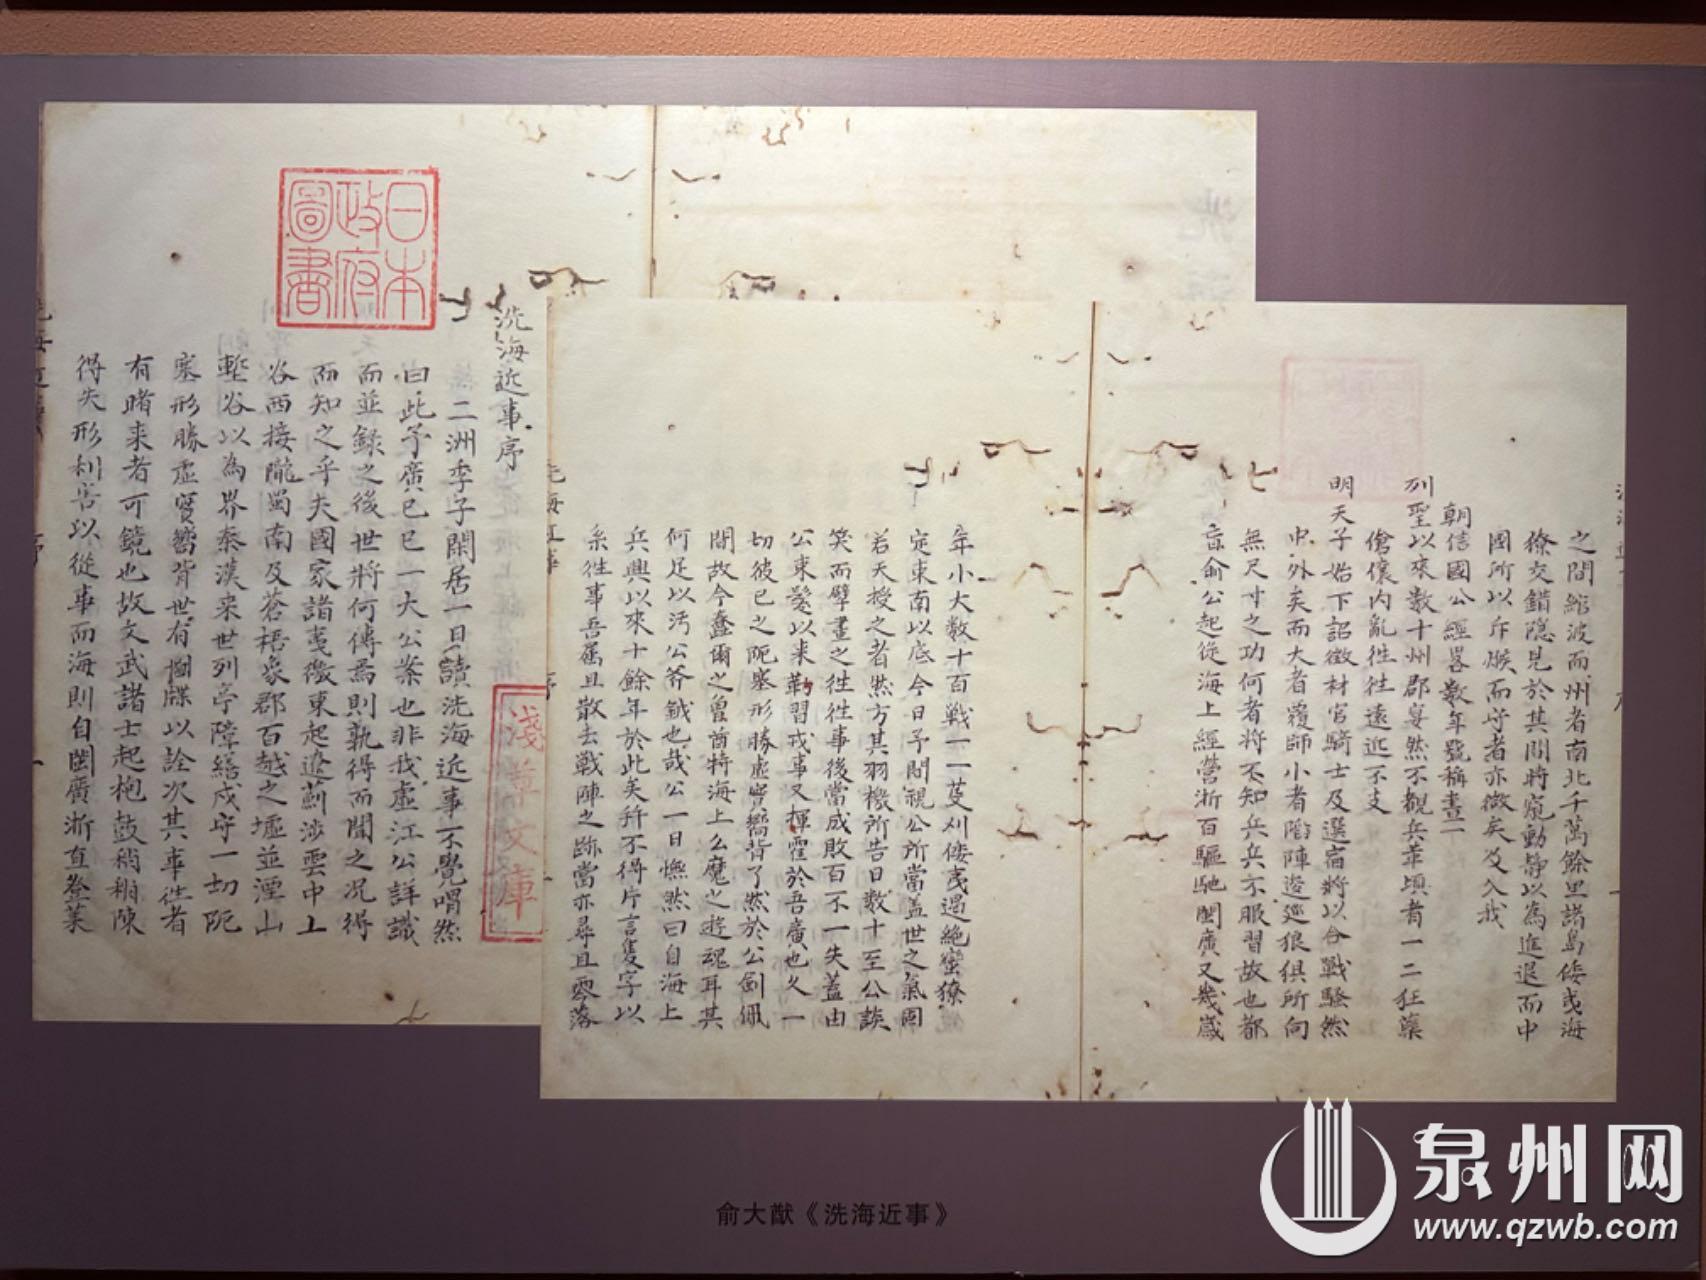 日本
政府
圖書
洗海近事序
二洲季子閑居一日讀洗海近事不覺喟然
曰此予廣己巳一大公案也非我虛江公詳識
而並錄之後世將何傳焉則孰得而聞之况得
而知之乎夫國家諸夷徼東起遼薊涉雲中上
谷西接隴蜀南及蒼梧象郡百越之墟並湮山
塹谷以為界秦漢来世列亭障繕戍守一切阨
塞形勝虛實嚮背世有圖牒以詮次其事徃者
有睹来者可鏡也故文武諸士起枹鼓稍稍陳
得失形利害以從事而海則自閩廣浙直登萊
淺草文庫
之間縮波而州者南北千萬餘里諸島倭夷海
獠交錯隐見於其間將窺動靜以為進退而中
國所以斥堠而守者亦微矣及入我
朝信國公經畧數年號稱畫一
列聖以來數十州郡宴然不覩兵革頃者一二狂藥
傖儴内亂徃徃遠近不支
明天子始下詔徵材官騎士及選宿將以合戰騷然
中外矣而大者覆師小者陷陣逡巡狼俱所向
無尺寸之功何者將不知兵兵不服習故也都
俞公起從海上經營浙百驅馳閩廣又幾歲
年小大数十百戰一一芟刈倭夷遏絶蛮獠
定東南以底今日予間視公所當盖世之氣固
若天授之者然方其羽機所告日数十至公談
笑而擘畫之徃徃事後當成敗百不一失蓋由
公束髮以来鞫習戎事又揮霍於吾廣也久一
切彼己之阨塞形勝虛實嚮背了然於公劍佩
間故今蠢爾之曾酋特海上么魔之遊魂耳其
何足以汚公斧鉞也哉公一日憮然曰自海上
兵興以來十餘年於此矣所不得片言隻字以
糸徃事吾屬且散去戰陣之跡當亦尋且零落
俞大猷《洗海近事》
泉州网
www.qzwb.com